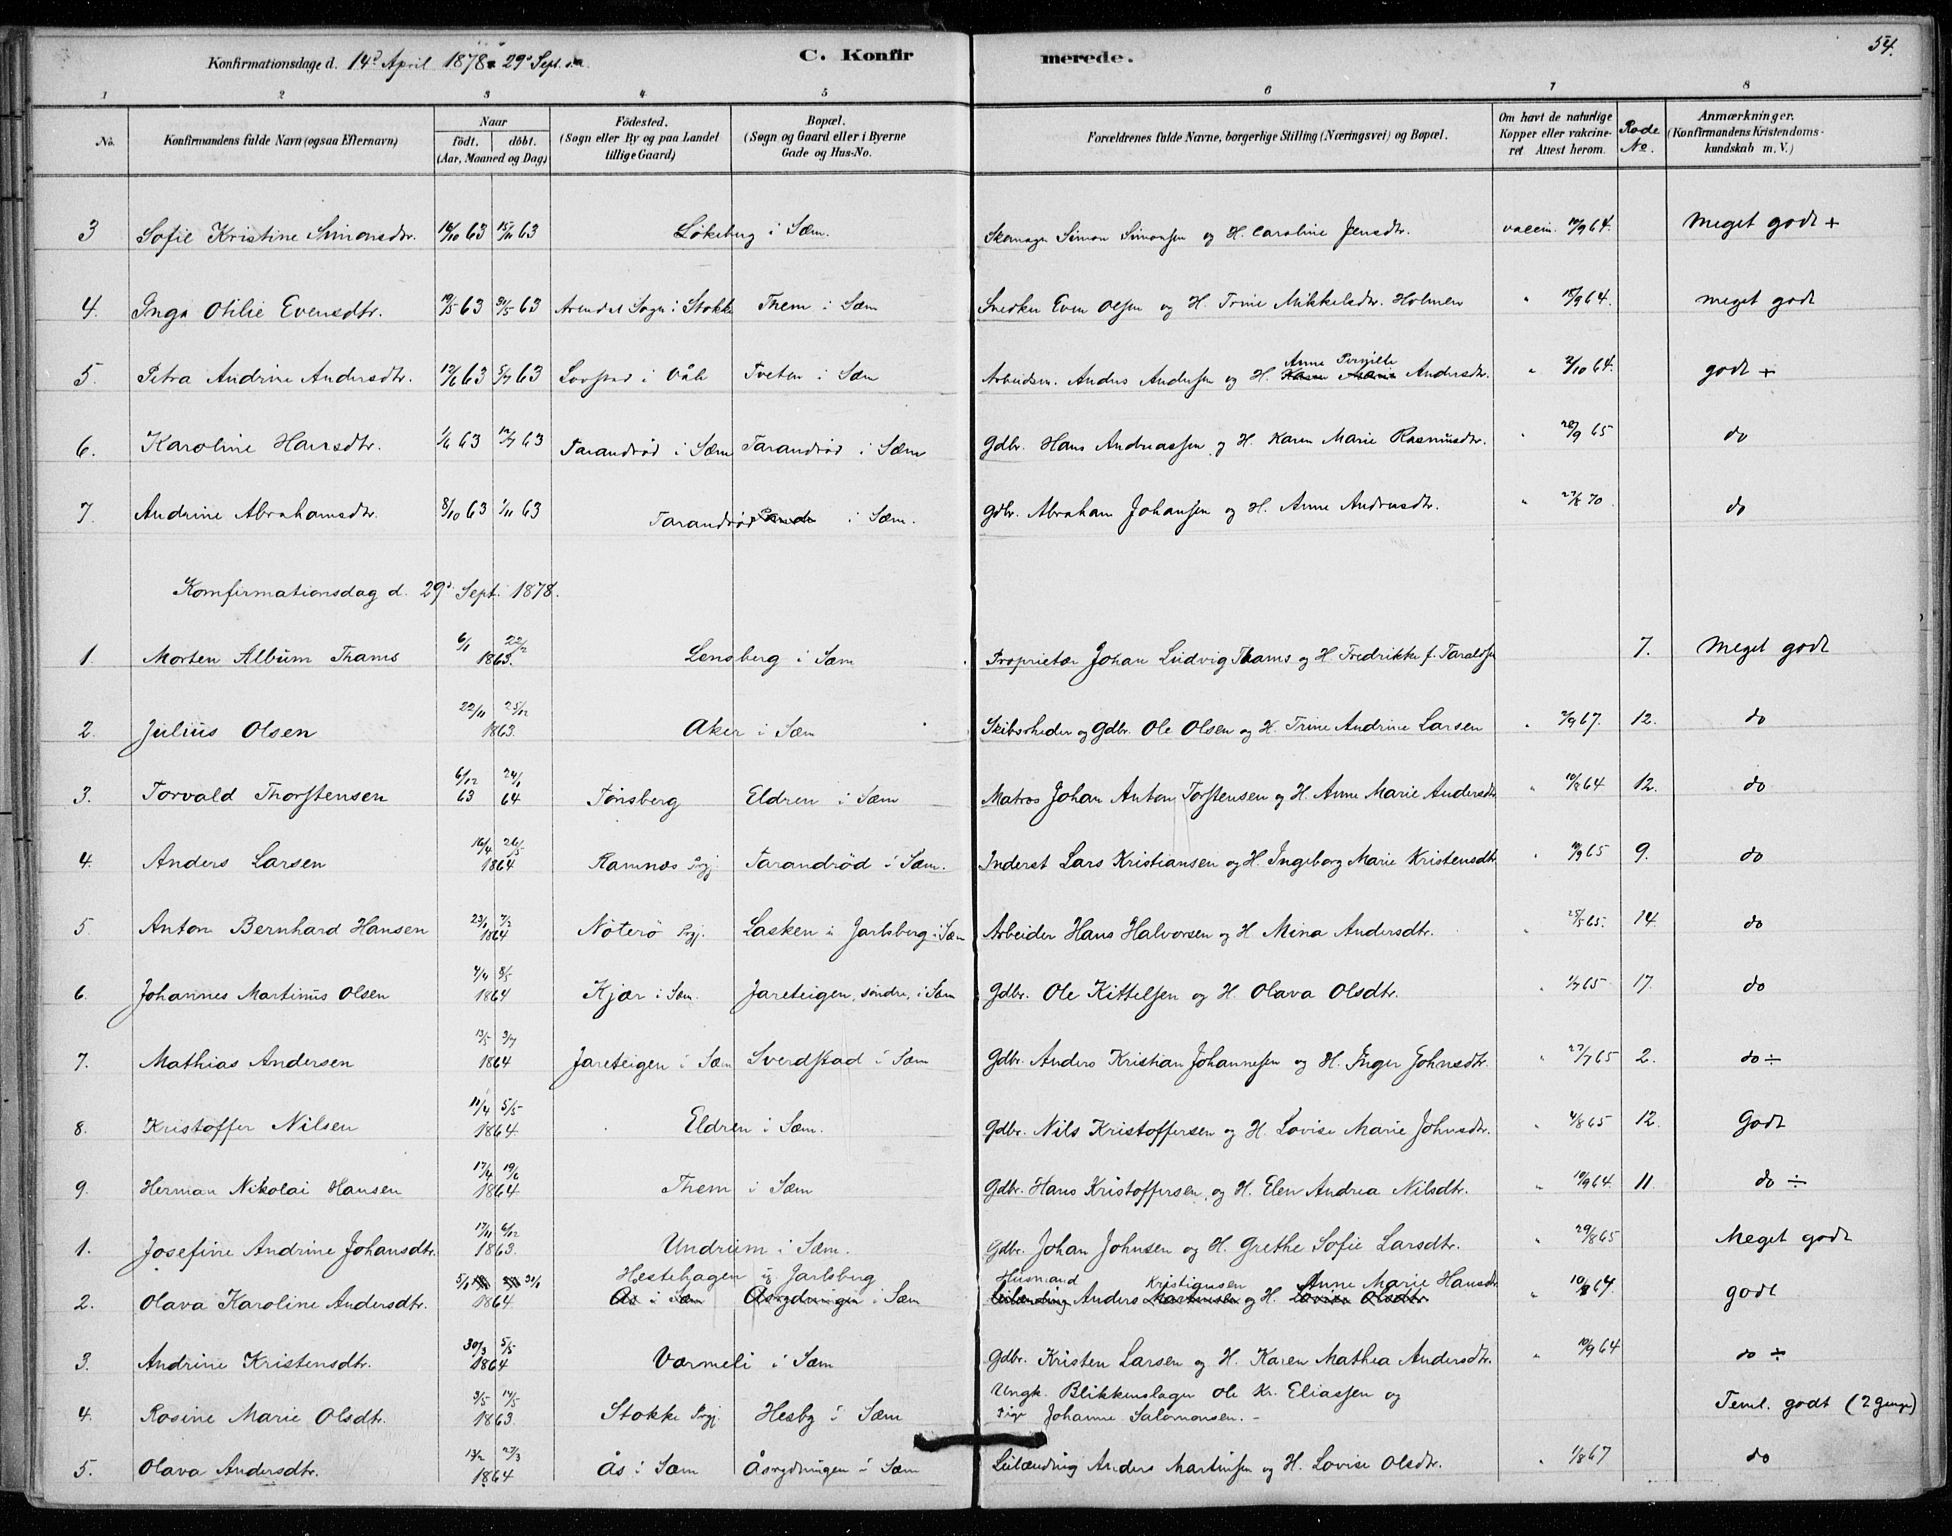 Konfirmationsdage d. 14d April 1878 29d Sept. s.a.
C. Konfirmerede.
54.
1 2 3 4 5 6 7 8
No. Konfirmandens fulde Navn (ogsaa Efternavn) Naar födt. döbt. (Aar, Maaned og Dag) Födested. (Sogn eller By og paa Landet tillige Gaard) Bopæl. (Sogn og Gaard eller i Byerne Gade og Hus-No. Forældrenes fulde Navne, borgerlige Stilling (Næringsvei) og Bopæl. Om havt de naturlige Kopper eller vakcineret Attest herom. Rode No. Anmærkninger. (Konfirmandens Kristendomskundskab m. V.)
3 Sofie Kristine Simonsdtr. 63 15/11 63 Lökeberg i Sæm. Skomager Simon Simonsen og H. Caroline Jensdtr. vaccin. 64. Meget godt +
4. Inga Otilie Evensdtr. 19/5 63 31/5 63 Arendal Sogn i Stokke Them i Sæm Snedker Even Olsen og H. Trine Mikkelsdtr. Holmen " 18/9 64. meget godt
5. Petra Andrine Andersdtr. 12/6 63 5/7 63 Lovstad i Våle Tveten i Sæm Arbeidsm. Anders Andersen og H. Anne Pernille Andersdtr. " 3/10 64. godt +
6. Karoline Hansdtr. 1/6 63 12/7 63 Tarandrød i Sæm Tarandrød i Sæm Gdbr. Hans Andreassen og H. Karen Marie Rasmusdtr. " 28/9 65 do
7. Andrine Abrahamsdtr. 8/10 63 1/11 63 Tarandrød i Sæm. Gdbr. Abraham Johansen og H. Anne Andreasdtr. " 70 do
Konfirmationsdag d. 29d Sept. 1878.
1. Morten Album Thams 6/1 22/2 1863. Lensberg i Sæm Proprietær Johan Ludvig Thams og H. Fredrikke f. Taraldsen 7. Meget godt
2. Julius Olsen 22/11 25/12 1863. Aker i Sæm Skibsrheder og Gdbr. Ole Olsen og H. Trine Andrine Larsen " 2/9 67. 12. do
3. Torvald Thorstensen 6/12 63 24/1 64 Tönsberg Eldren i Sæm Matros Johan Anton Torstensen og H. Anne Marie Andersdtr " 10/8 64 12. do
4. Anders Larsen 16/4 26/5 1864 Ramnæs Prgj Tarandrød i Sæm. Inderst Lars Kristiansen og H. Ingeborg Marie Kristensdtr " 65 9. do
5 Anton Bernhard Hansen 23/1 7/3 1864 Nöterö Prgj. Lasken i Jarlsberg i Sæm Arbeider Hans Halvorsen og H. Mina Andersdtr. " 25/5 65. 14. do
6. Johannes Martinus Olsen 4/4 8/5 1864 Kjær i Sæm. Jareteigen, söndre, i Sæm Gdbr. Ole Kittelsen og H. Olava Olsdtr. " 1/7 65 17. do
7. Mathias Andersen 13/5 3/7 1864 Jareteigen i Sæm Sverdstad i Sæm Gdbr. Anders Kristian Johannesen og H. Inger Johnsdtr. " 27/7 65 2. do ÷
8. Kristoffer Nilsen 11/4 5/5 1864. Eldren i Sæm. Gdbr. Nils Kristoffersen og H. Lovise Marie Johnsdtr. " 4/8 65 12. Godt
9. Herman Nikolai Hansen 17/4 19/6 1864 Them i Sæm Gdbr. Hans Kristoffersen, og H. Elen Andrea Nilsdtr. " 10/9 64. 11. do ÷
1. Josefine Andrine Johansdtr. 17/11 6/12 1863. Undrum i Sæm. Gdbr. Johan Johnsen og H. Grethe Sofie Larsdtr. " 29/8 65 Meget godt
Hestehagen Jarlsberg Husmand Kristiansen Anne Marie Hansdtr
2. Olava Karoline Andersdtr. 1864 Ås i Sæm Åsrydningen i Sæm Leilænding Anders Martinsen og H. Lovise Olsdtr " 10/8 64. godt
3. Andrine Kristensdtr. 30/3 5/5 1864 Værmeli i Sæm Gdbr. Kristen Larsen og H. Karen Mathea Andersdtr. " 10/9 64 do ÷
4. Rosine Marie Olsdtr. 3/5 14/5 1863. Stokke Prgj. Hesby i Sæm Ungk. Blikkenslager Ole Kr. Eliassen og
Pige Johanne Salomonsen. - Teml. godt (2 Gange)
5. Olava Andersdtr. 13/2 27/3 1864 Ås i Sæm Åsrydningen i Sæm Leilænding Anders Martinsen og H. Lovise Olsdtr. " 1/8 67 do